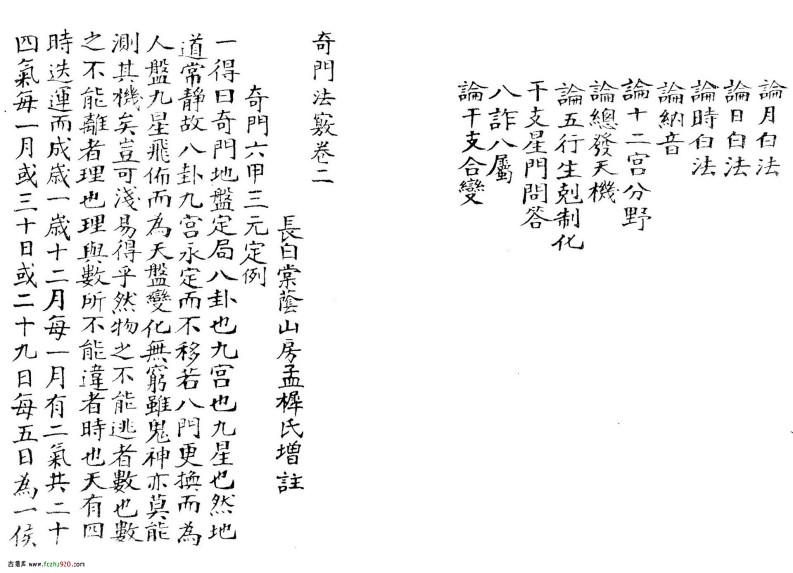 論月白法
論日白法
論時白法
論納音
論十二宫分野
論總發天機
論五行生剋制化
干支星門問答
八詐八屬
論干支合變
奇門法竅卷二
長白棠蔭山房孟樨氏增註
奇門六甲三元定例
一得曰奇門地盤定局八卦也九宫也九星也然地
道常靜故八卦九宫永定而不移若八門更換而為
人盤九星飛佈而為天盤變化無窮雖鬼神亦莫能
測其機矣豈可淺易得乎然物之不能逃者數也數
之不能離者理也理與數所不能違者時也天有四
時迭運而成歲一歲十二月每一月有二氣共二十
四氣每一月或三十日或二十九日每五日為一侯
古籍库 www.fozhu920.com